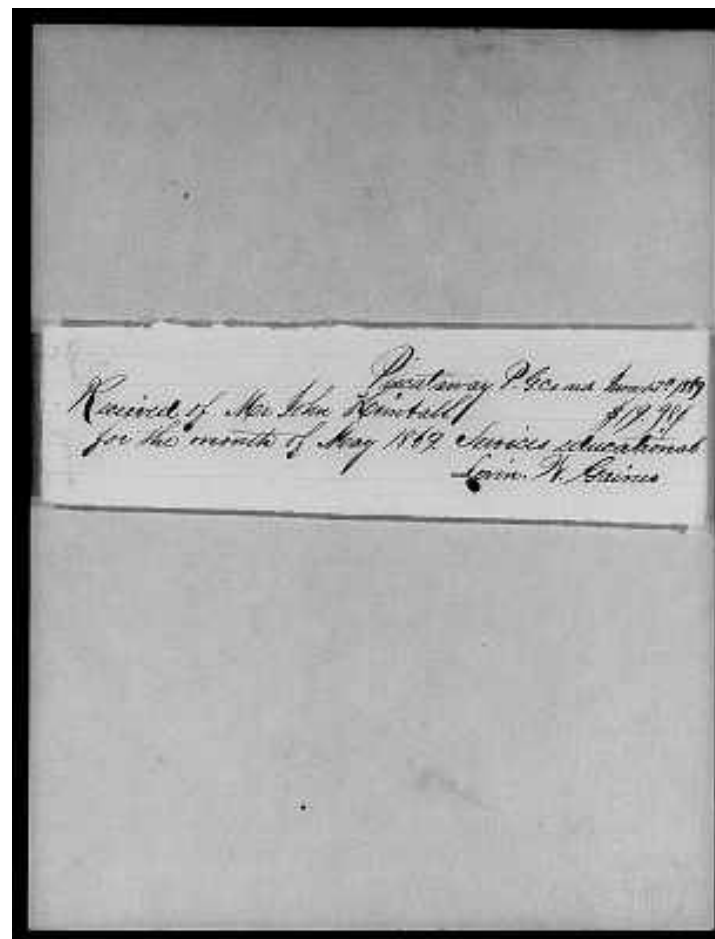 Piscataway P. G. Co. md June 1869
Received of Mr John Kimball
for the month of May 1869. Services educational
W. Gaines